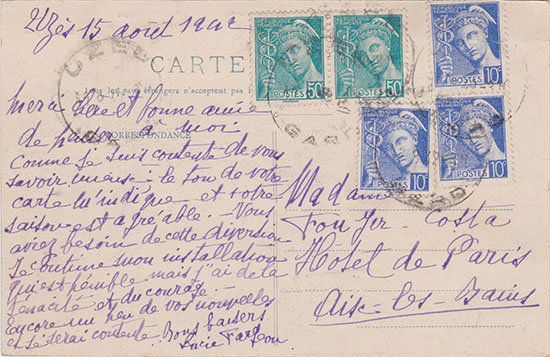 Uzès 15 août 1942
UZES
GARD
CARTE
RÉPUBLIQUE FRANÇAISE
POSTES 50c
RÉPUBLIQUE FRANÇAISE
POSTES 50c
POSTES 10c
POSTES 10c
POSTES 10c
pays étrangers n'acceptent pas
CORRESPONDANCE
Merci chère et bonne amie
de penser à moi
Comme je suis contente de vous
savoir mieux : le ton de votre
carte l'indique et votre
saison est agréable. Vous
aviez besoin de cette diversion
Je continue mon installation
qui est pénible mais j'ai de la
ténacité et du courage. —
Encore un peu de vos nouvelles
et je serai contente. Bons baisers
Lucie Fargeon
Madame
Fouger-Costa
Hôtel de Paris
Aix-les-Bains